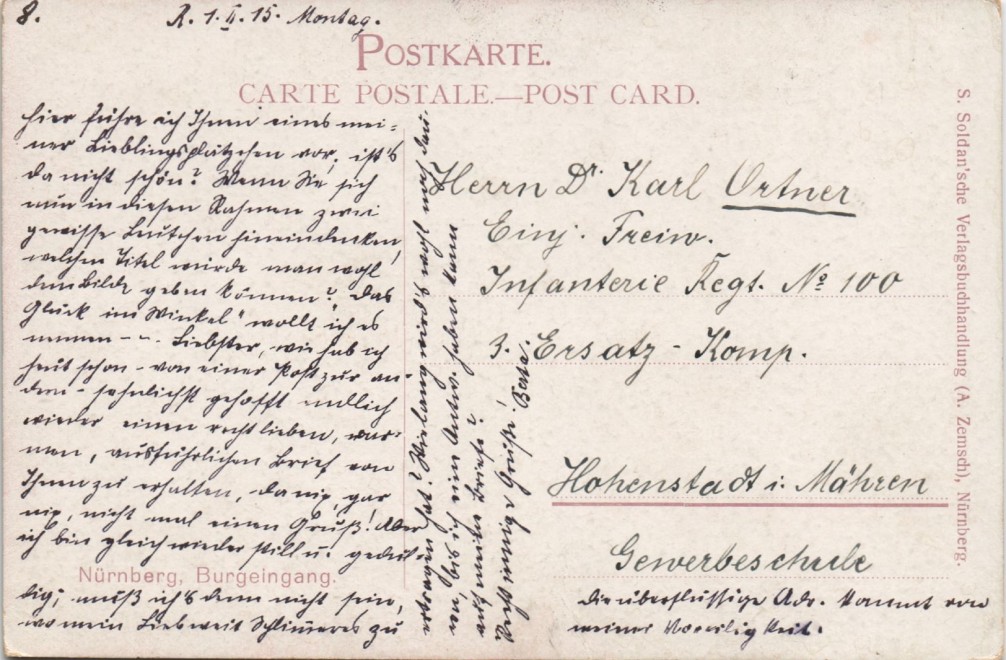 8.
N. 1.II.15. Montag.
POSTKARTE.
CARTE POSTALE.—POST CARD.
hier führe ich Ihnen eines mei-
ner Lieblingsplätzchen vor, ist's
da nicht schön? Wenn Sie sich
nun in diesen Rahmen zwei
gewisse Leutchen hineindenken,
welchen Titel würde man wohl
dem Bilde geben können? "Das
Glück im Winkel" wollt ich es
nennen -- Liebster, wie hab ich
heut schon - von einer Post zur an-
dern - sehnlichst gehofft endlich
wieder einen recht lieben, war-
men, ausführlichen Brief von
Ihnen zu erhalten, da nix, gar
nix, nicht mal einen Gruß! Aber
ich bin gleich wieder still u. gedul-
dig; muß ich's denn nicht sein,
wo mein Lieb weit Schlimmeres zu
ertragen hat? Wie lang wird's wohl noch dau-
ern, bis ich eine Antw. haben kann
auf meine Briefe?
Recht innige Grüße! Berta.
Nürnberg, Burgeingang.
Herrn Dr. Karl Ortner
Einj. Freiw.
Infanterie Regt. No 100
3. Ersatz-Komp.
Hohenstadt i. Mähren
Gewerbeschule
die überflüssige Adr. kommt von
meiner Voreiligkeit.
S. Soldan'sche Verlagsbuchhandlung (A. Zemsch), Nürnberg.